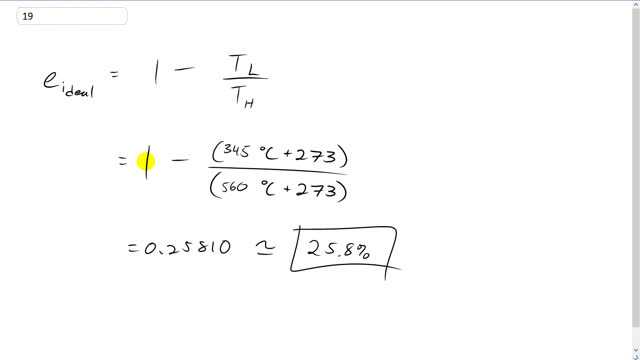 19
e_ideal = 1 - T_L / T_H
= 1 - (345 °C + 273) / (560 °C + 273)
= 0.25810 ≃ 25.8%